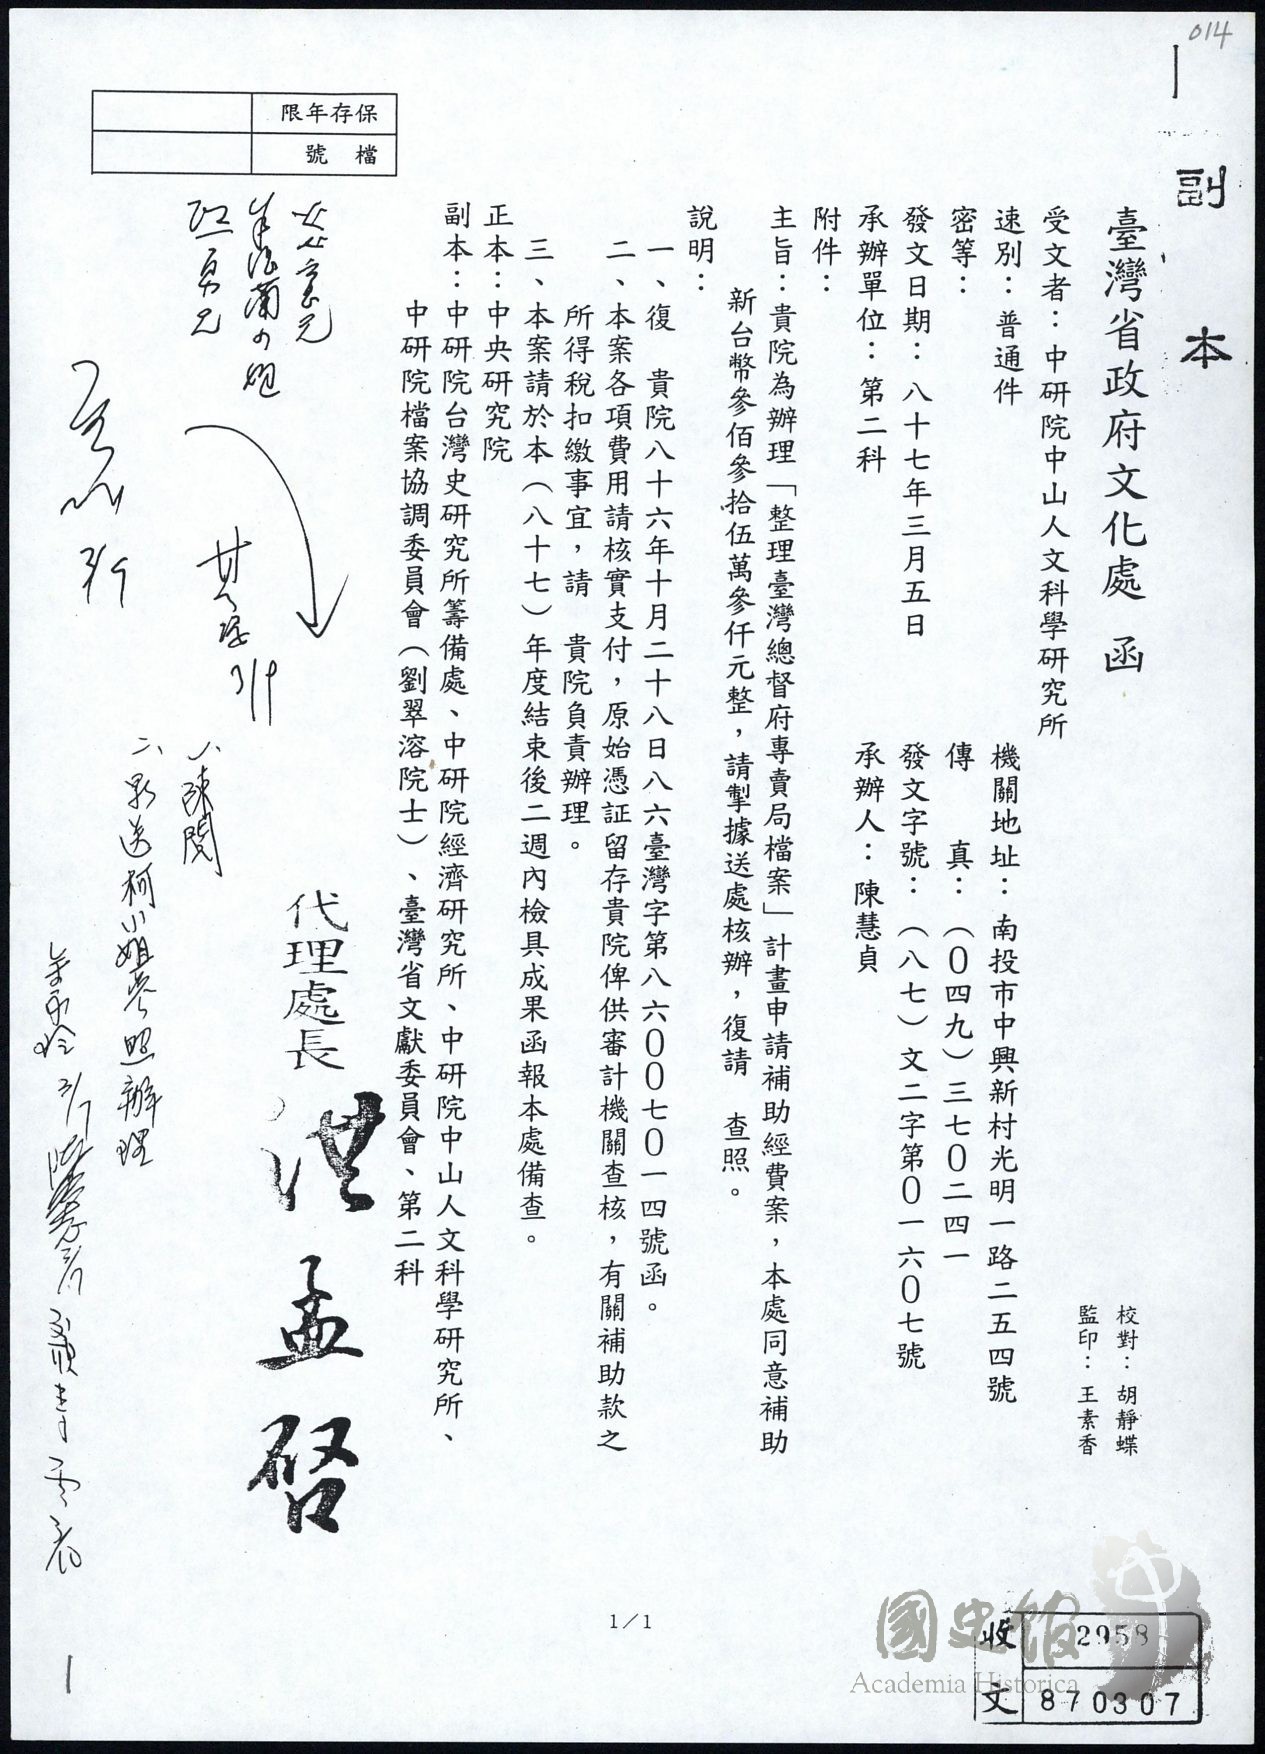 014
副本
臺灣省政府文化處 函
校對：胡靜蝶
監印：王素香
受文者：中研院中山人文科學研究所
速別：普通件
密等：
發文日期：八十七年三月五日
承辦單位：第二科
附件：
機關地址：南投市中興新村光明一路二五四號
傳 真：（０四九）三七０二四一
發文字號：（八七）文二字第０一六０七號
承辦人：陳慧貞
主旨：貴院為辦理「整理臺灣總督府專賣局檔案」計畫申請補助經費案，本處同意補助
新台幣參佰參拾伍萬參仟元整，請掣據送處核辦，復請 查照。
說明：
一、復 貴院八十六年十月二十八日八六臺灣字第八六００七０一四號函。
二、本案各項費用請核實支付，原始憑証留存貴院俾供審計機關查核，有關補助款之
所得稅扣繳事宜，請 貴院負責辦理。
三、本案請於本（八十七）年度結束後二週內檢具成果函報本處備查。
正本：中央研究院
副本：中研院台灣史研究所籌備處、中研院經濟研究所、中研院中山人文科學研究所、
中研院檔案協調委員會（劉翠溶院士）、臺灣省文獻委員會、第二科
代理處長 洪孟啓
保存年限
檔號
3/9
3/9
一、陳閱
二、影送柯小姐參照辦理
3/7
1/1
國史館
Academia Historica
收文
2958
870307